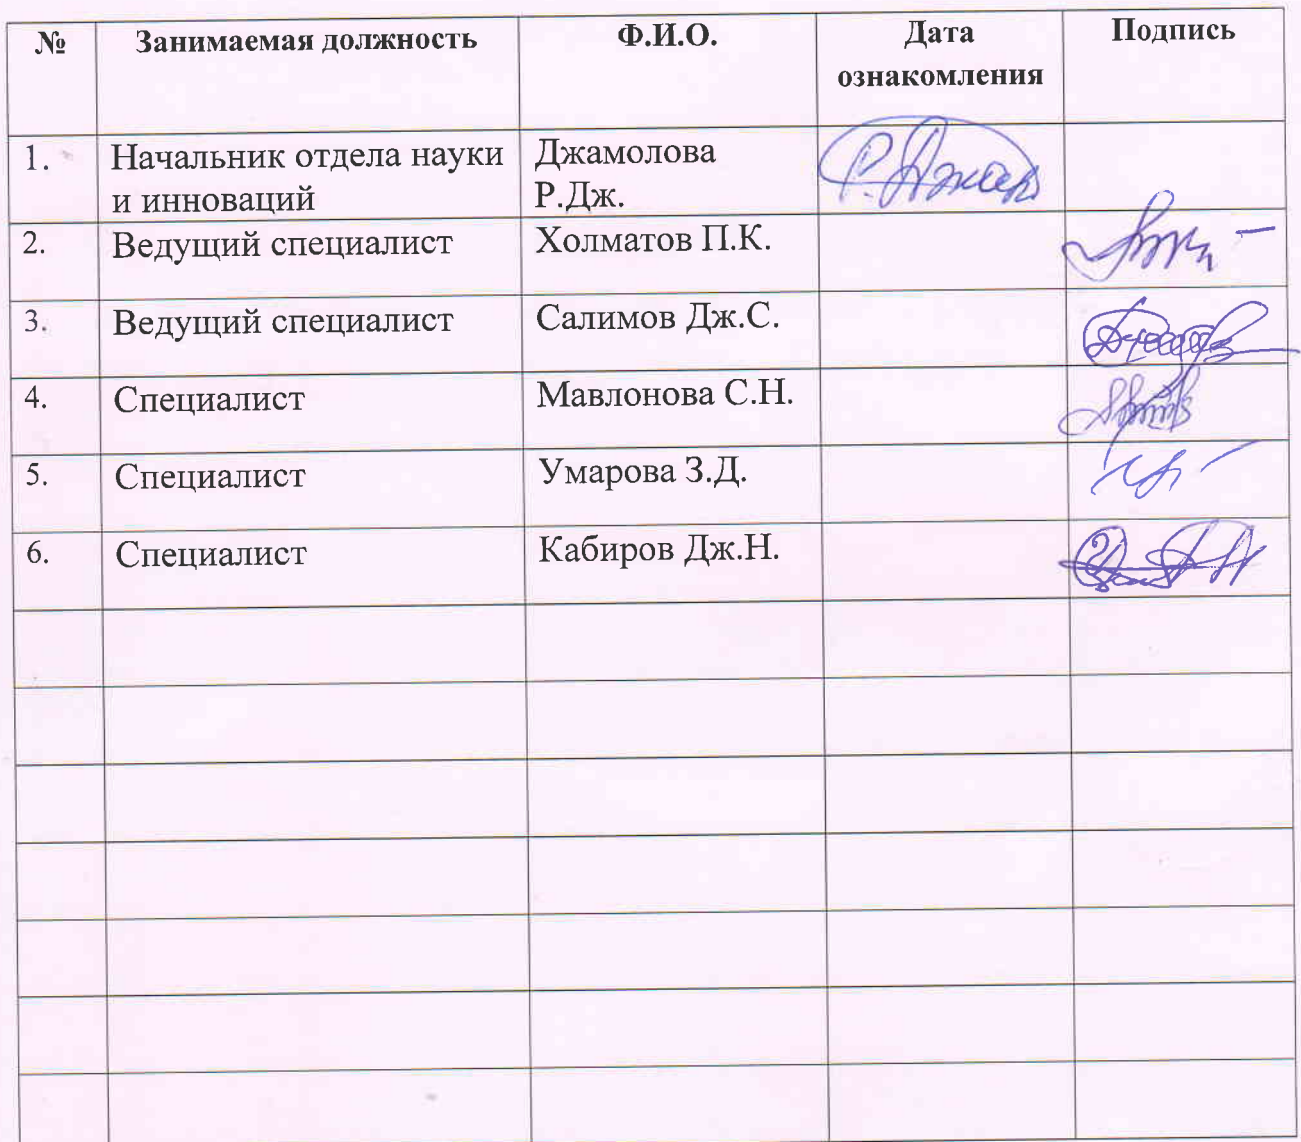 № Занимаемая должность Ф.И.О. Дата Подпись
ознакомления
1. Начальник отдела науки Джамолова
и инноваций Р.Дж.
2. Ведущий специалист Холматов П.К.
3. Ведущий специалист Салимов Дж.С.
4. Специалист Мавлонова С.Н.
5. Специалист Умарова З.Д.
6. Специалист Кабиров Дж.Н.